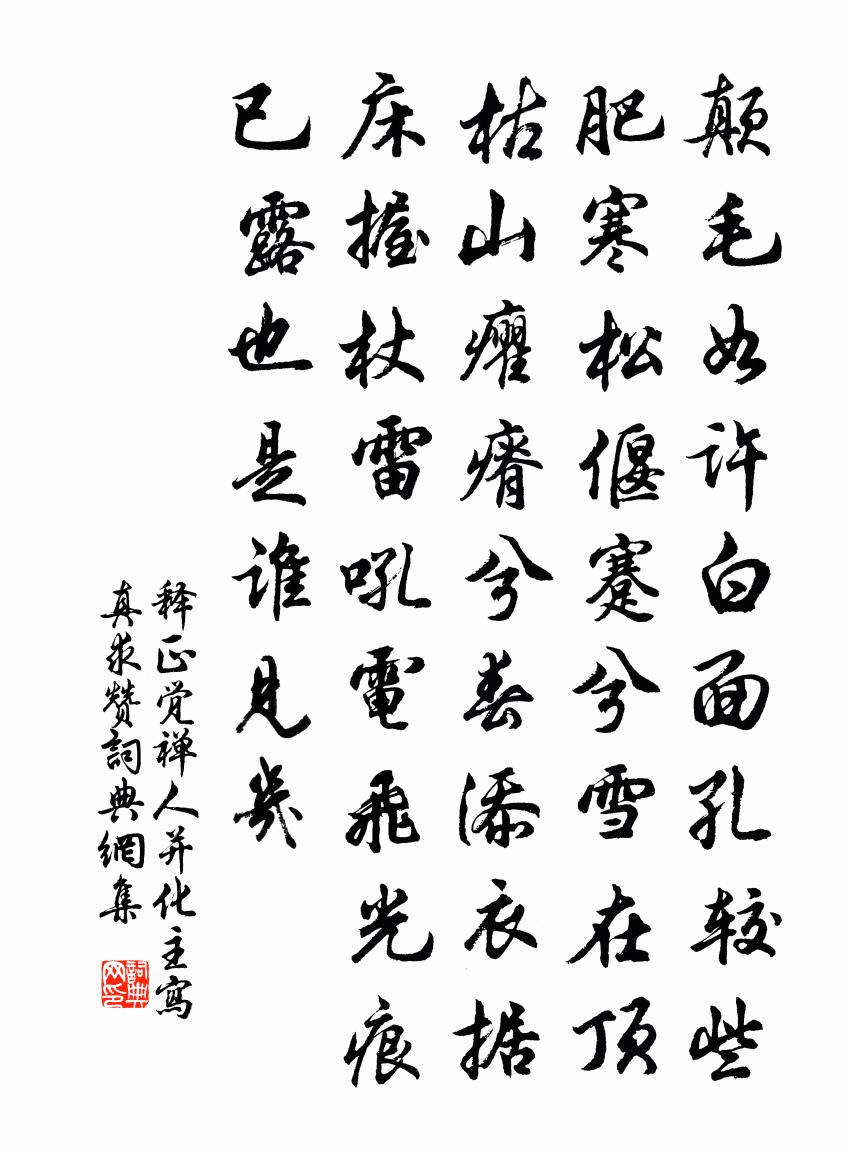 颠毛如许白面孔较些
肥寒松偃蹇兮雪在顶
枯山癯瘠兮春添衣据
床握杖雷吼電飛光痕
已露也是谁見幾
释正觉禅人并化主寫
真求赞詞典網集
詞典网印